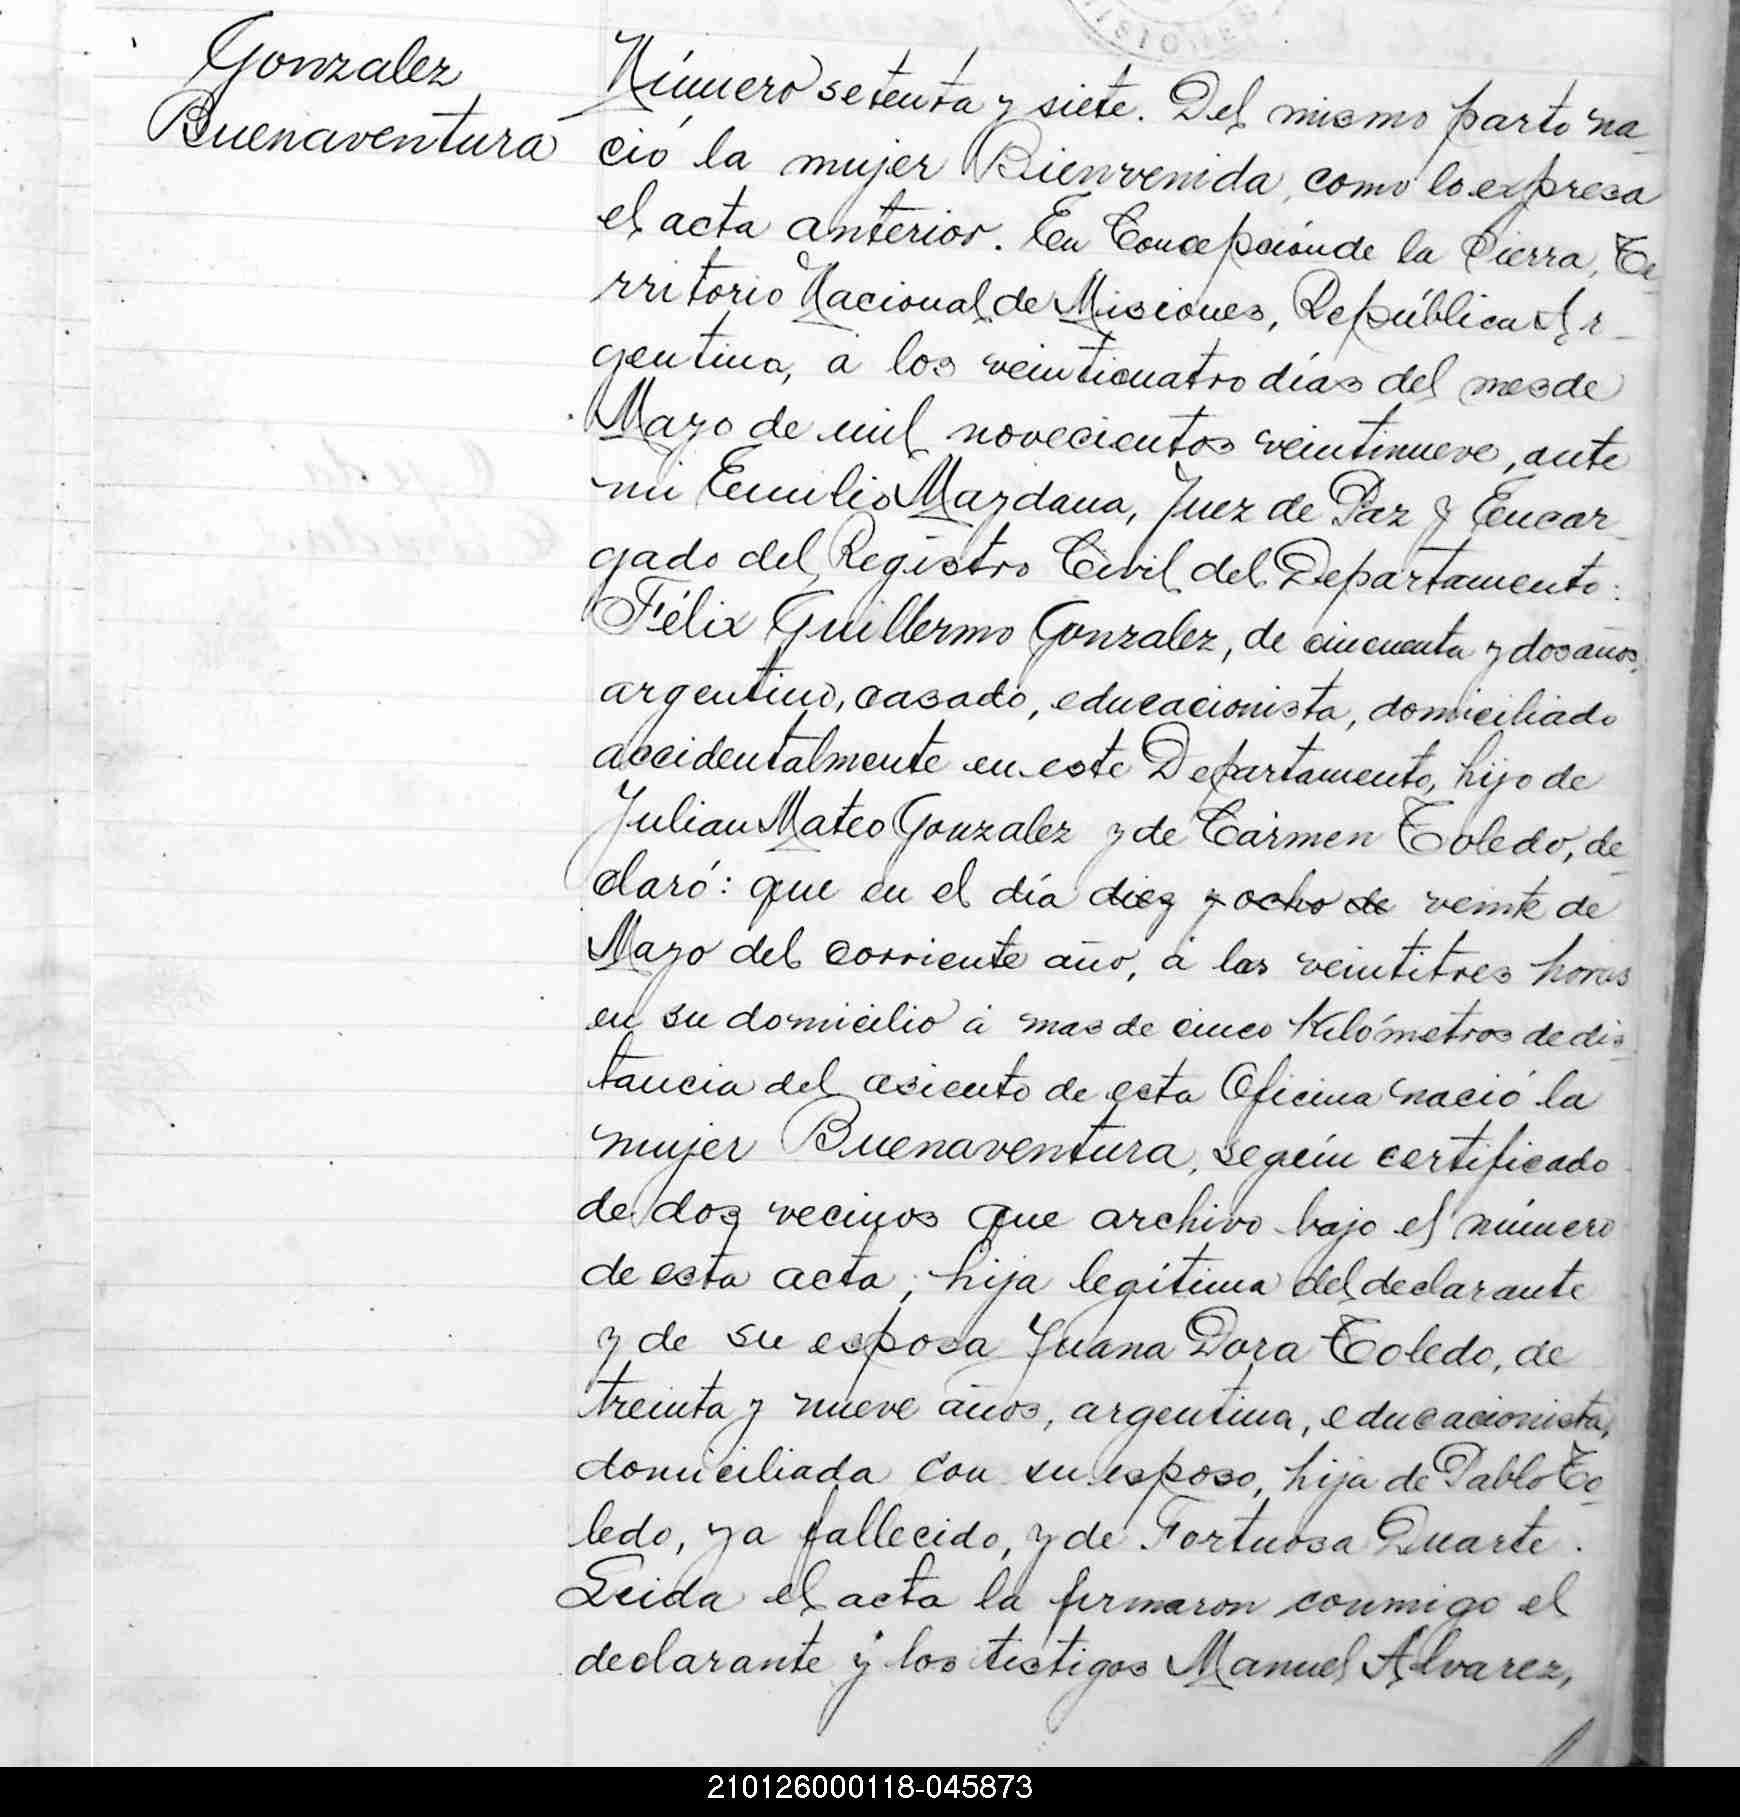 Gonzalez
Buenaventura
Número setenta y siete. Del mismo parto na-
ció la mujer Bienvenida, como lo expresa
el acta anterior. En Concepción de la Sierra, Te-
rritorio Nacional de Misiones, República Ar-
gentina, á los veinticuatro días del mes de
Mayo de mil novecientos veintinueve, ante
mi Emilio Maydana, Juez de Paz y Encar-
gado del Registro Civil del Departamento:
Félix Guillermo Gonzalez, de cincuenta y dos años,
argentino, casado, educacionista, domiciliado
accidentalmente en este Departamento, hijo de
Julian Mateo Gonzalez y de Cármen Toledo, de-
claró: que en el día diez y ocho de veinte de
Mayo del corriente año, á las veintitres horas
en su domicilio á mas de cinco Kilómetros de dis-
tancia del asiento de esta Oficina nació la
mujer Buenaventura, según certificado
de dos vecinos que archivo bajo el número
de esta acta; hija legítima del declarante
y de su esposa Juana Dora Toledo, de
treinta y nueve años, argentina, educacionista,
domiciliada con su esposo, hija de Pablo To-
ledo, ya fallecido, y de Fortuosa Duarte.
Leida el acta la firmaron conmigo el
declarante y los testigos Manuel Alvarez,
210126000118-045873